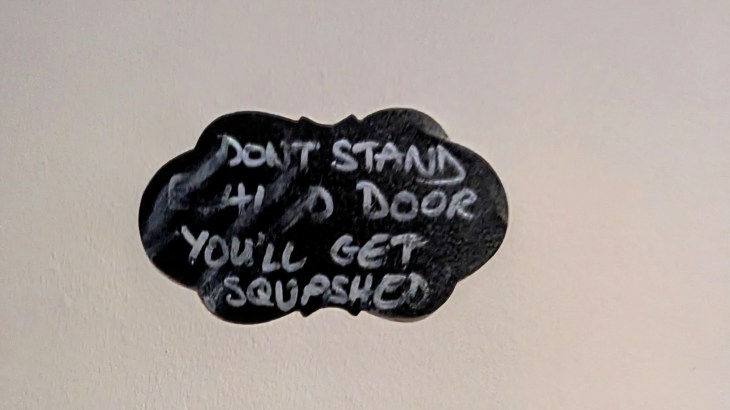 DONT STAND
DOOR
YOU'LL GET
SQUASHED